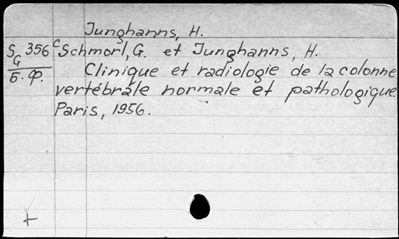 Junghanns, H.
S 356 c Schmorl, G. et Junghanns, H.
G
Б.ф. Clinique et radiologie de la colonne
vertébrale normale et pathologique.
Paris, 1956.
+